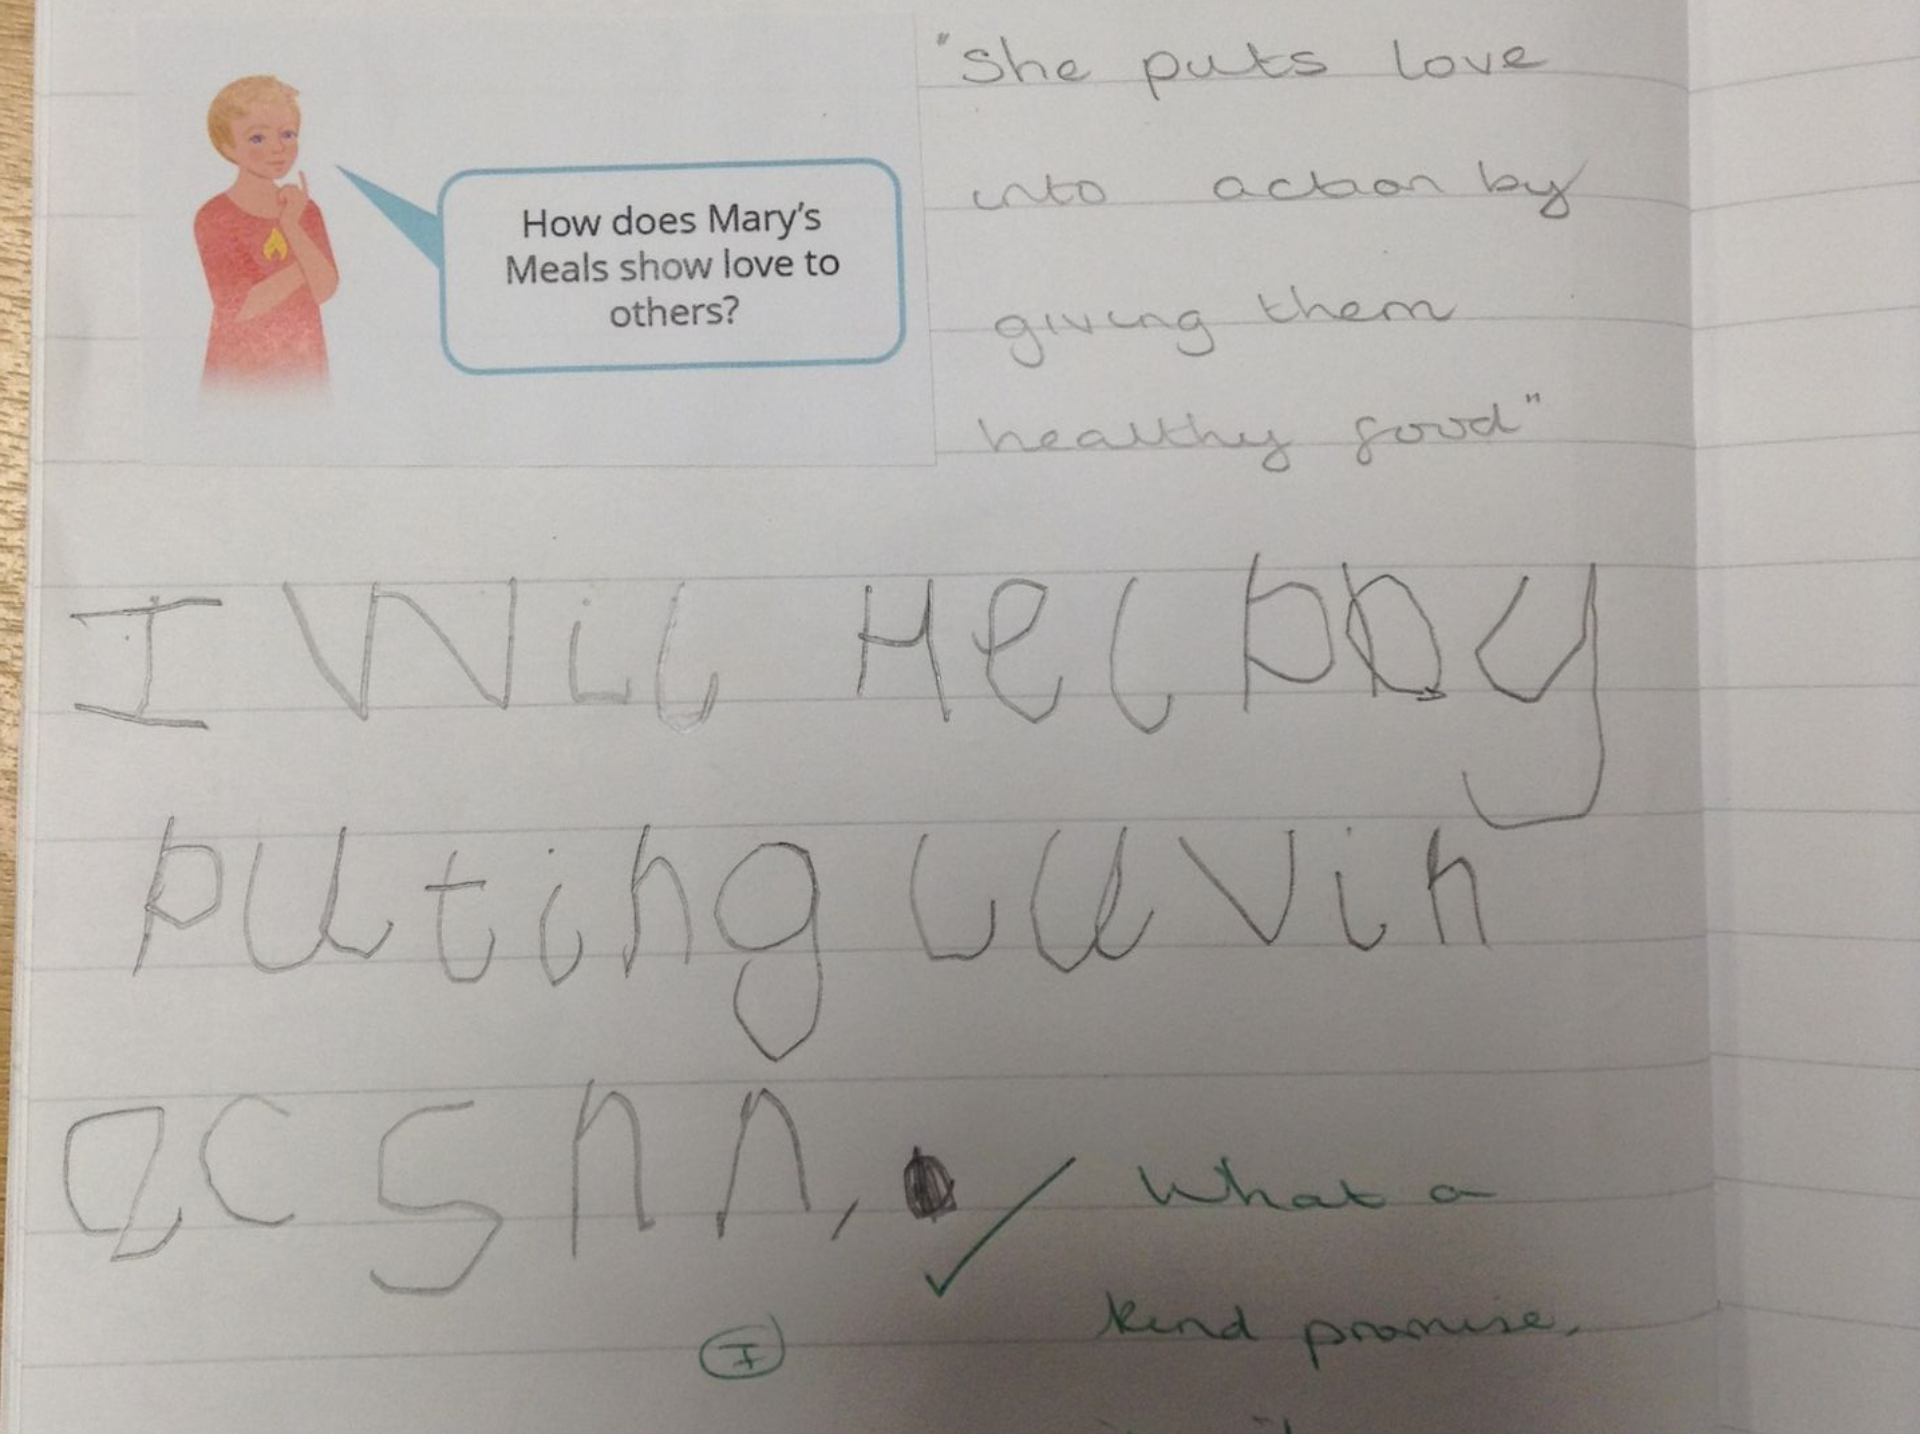 How does Mary's
Meals show love to
others?
"She puts love
into action by
giving them
healthy food"
I Will Help by
puting luv in
acshn,.
What a
kind promise.
I